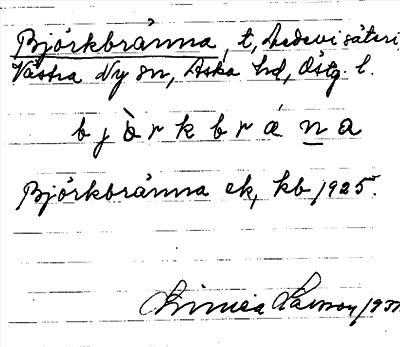 Björkbränna, t, Medevi säteri,
Västra Ny sn, Aska hd, Östg. l.
b j ö̀ r k b r á n a
Björkbränna ek, kb 1925.
Linnéa Larsson 193